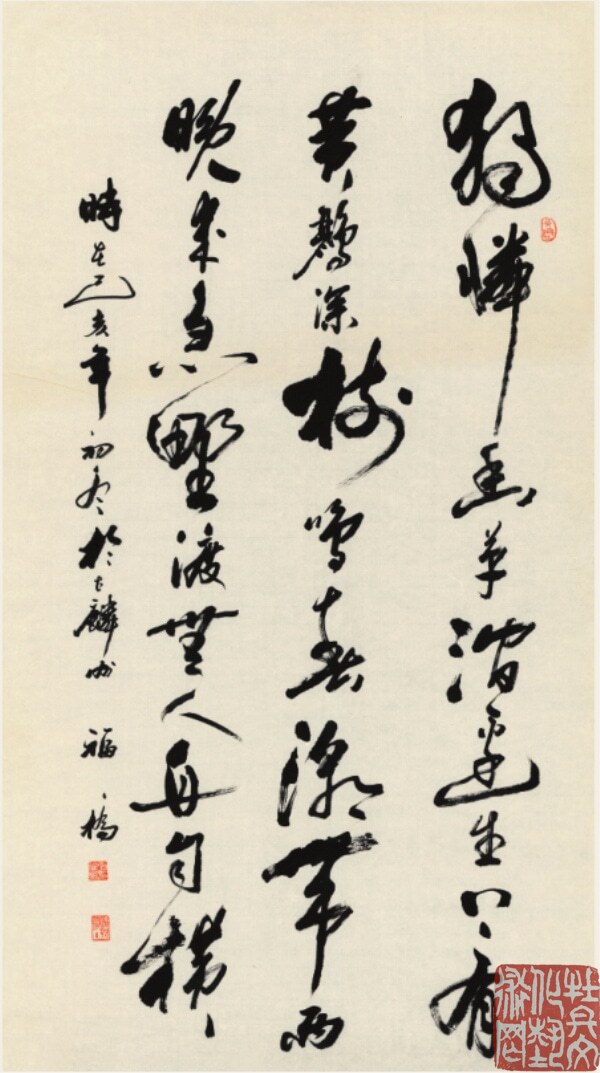 獨憐幽草澗邊生上有
黃鸝深樹鳴春潮帶雨
晚來急野渡無人舟自橫
時在己亥年初冬於古麟州 福橋
牡丹文化藝術網